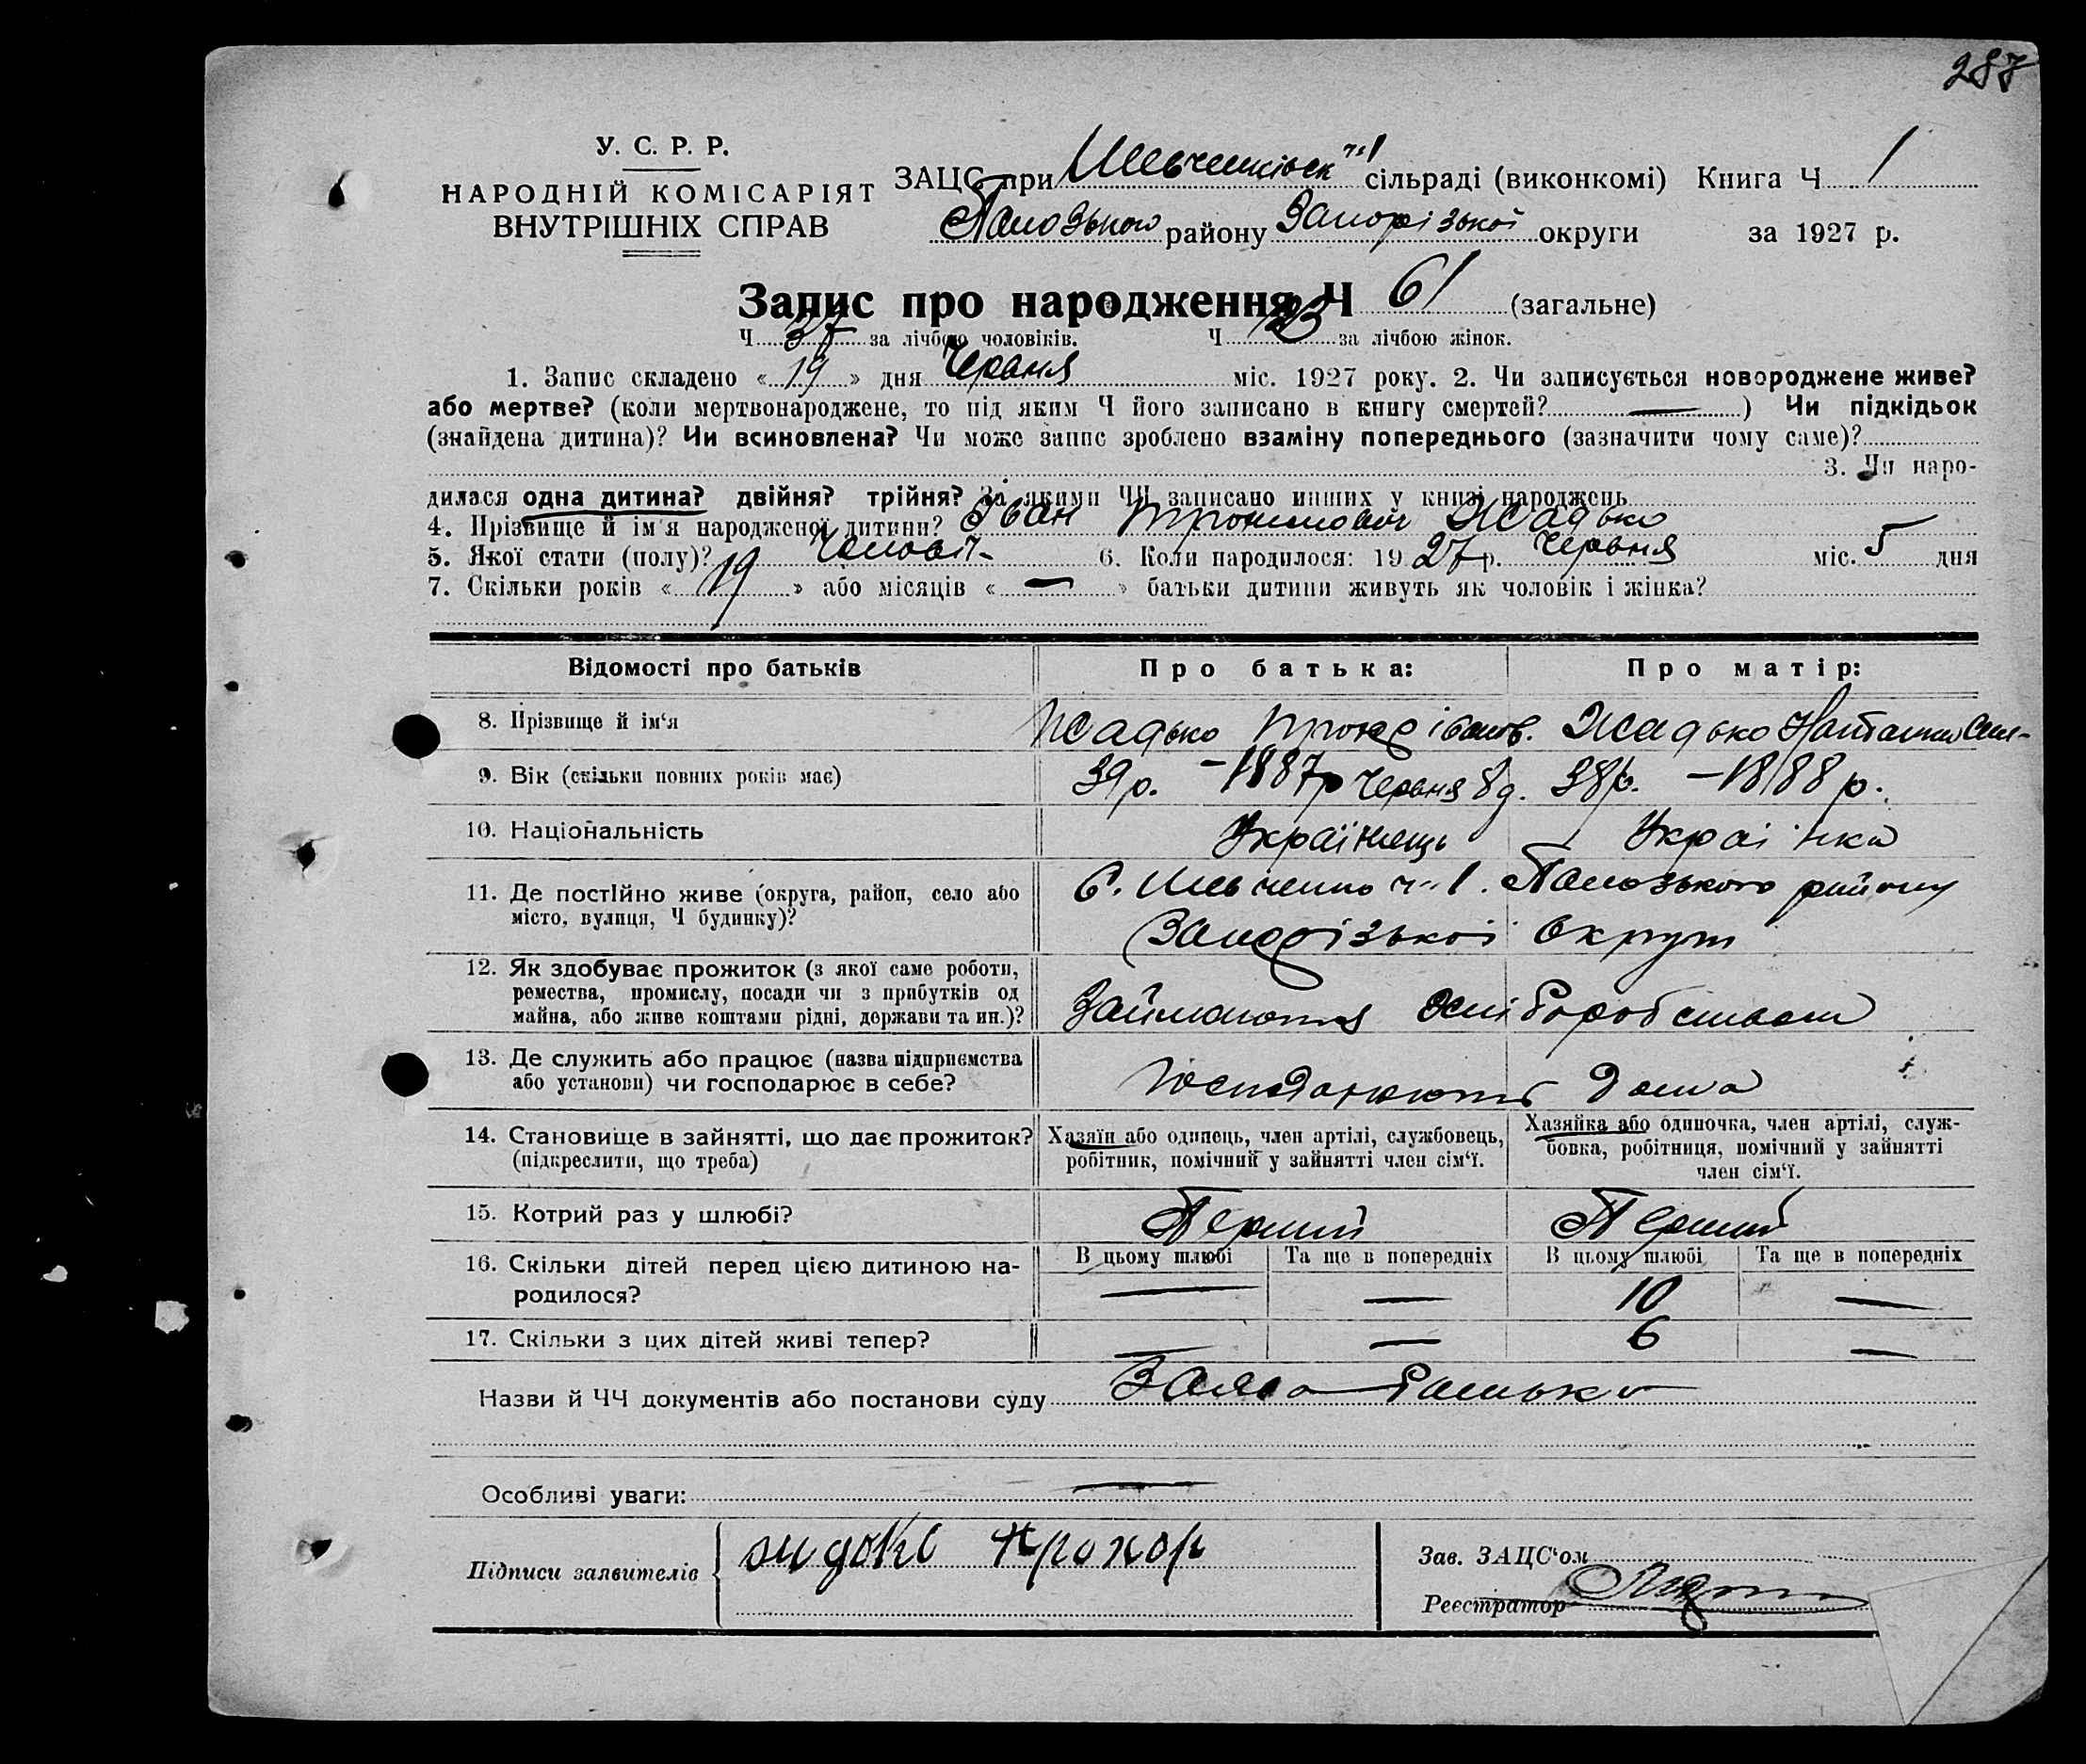 287
У. С. Р. Р.
НАРОДНІЙ КОМІСАРІЯТ
ВНУТРІШНІХ СПРАВ
ЗАЦС при сільраді (виконкомі) Книга Ч 1
району Запорізької округи за 1927 р.
Запис про народження Ч 61 (загальне)
Ч 37 за лічбою чоловіків. Ч за лічбою жінок.
1. Запис складено « 19 » дня Червня міс. 1927 року. 2. Чи записується новороджене живе?
або мертве? (коли мертвонароджене, то під яким Ч його записано в книгу смертей? — ) Чи підкідьок
(знайдена дитина)? Чи всиновлена? Чи може запис зроблено взаміну попереднього (зазначити чому саме)?
3. Чи наро-
дилася одна дитина? двійня? трійня? За якими ЧЧ записано инших у книзі народжень
4. Прізвище й ім'я народженої дитини? Іван Жадько
5. Якої стати (полу)? Чоловіч. 6. Коли народилося: 1927 р. Червня міс. 5 дня
7. Скільки років « 19 » або місяців « — » батьки дитини живуть як чоловік і жінка?
Відомості про батьків Про батька: Про матір:
8. Прізвище й ім'я Жадько Жадько
9. Вік (скільки повних років має) 39 р. – 1887 р Червня 8 д. 38 р. – 1888 р.
10. Національність Українець Українка
11. Де постійно живе (округа, район, село або
місто, вулиця, Ч будинку)?
С. Шевченко ч. 1. району
Запорізької округи
12. Як здобуває прожиток (з якої саме роботи,
ремества, промислу, посади чи з прибутків од
майна, або живе коштами рідні, держави та ин.)?
Займаются хліборобством
13. Де служить або працює (назва підприємства
або установи) чи господарює в себе?
Господарюють дома
14. Становище в зайнятті, що дає прожиток?
(підкреслити, що треба)
Хазяїн або одинець, член артілі, службовець,
робітник, помічний у зайнятті член сім'ї.
Хазяйка або одиночка, член артілі, служ-
бовка, робітниця, помічний у зайнятті
член сім'ї.
15. Котрий раз у шлюбі? Перший Перший
В цьому шлюбі Та ще в попередніх В цьому шлюбі Та ще в попередніх
16. Скільки дітей перед цією дитиною на-
родилося? — — 10 —
17. Скільки з цих дітей живі тепер? — — 6 —
Назви й ЧЧ документів або постанови суду Заява батька
Особливі уваги: —
Підписи заявителів Прохор
Зав. ЗАЦС'ом
Реєстратор